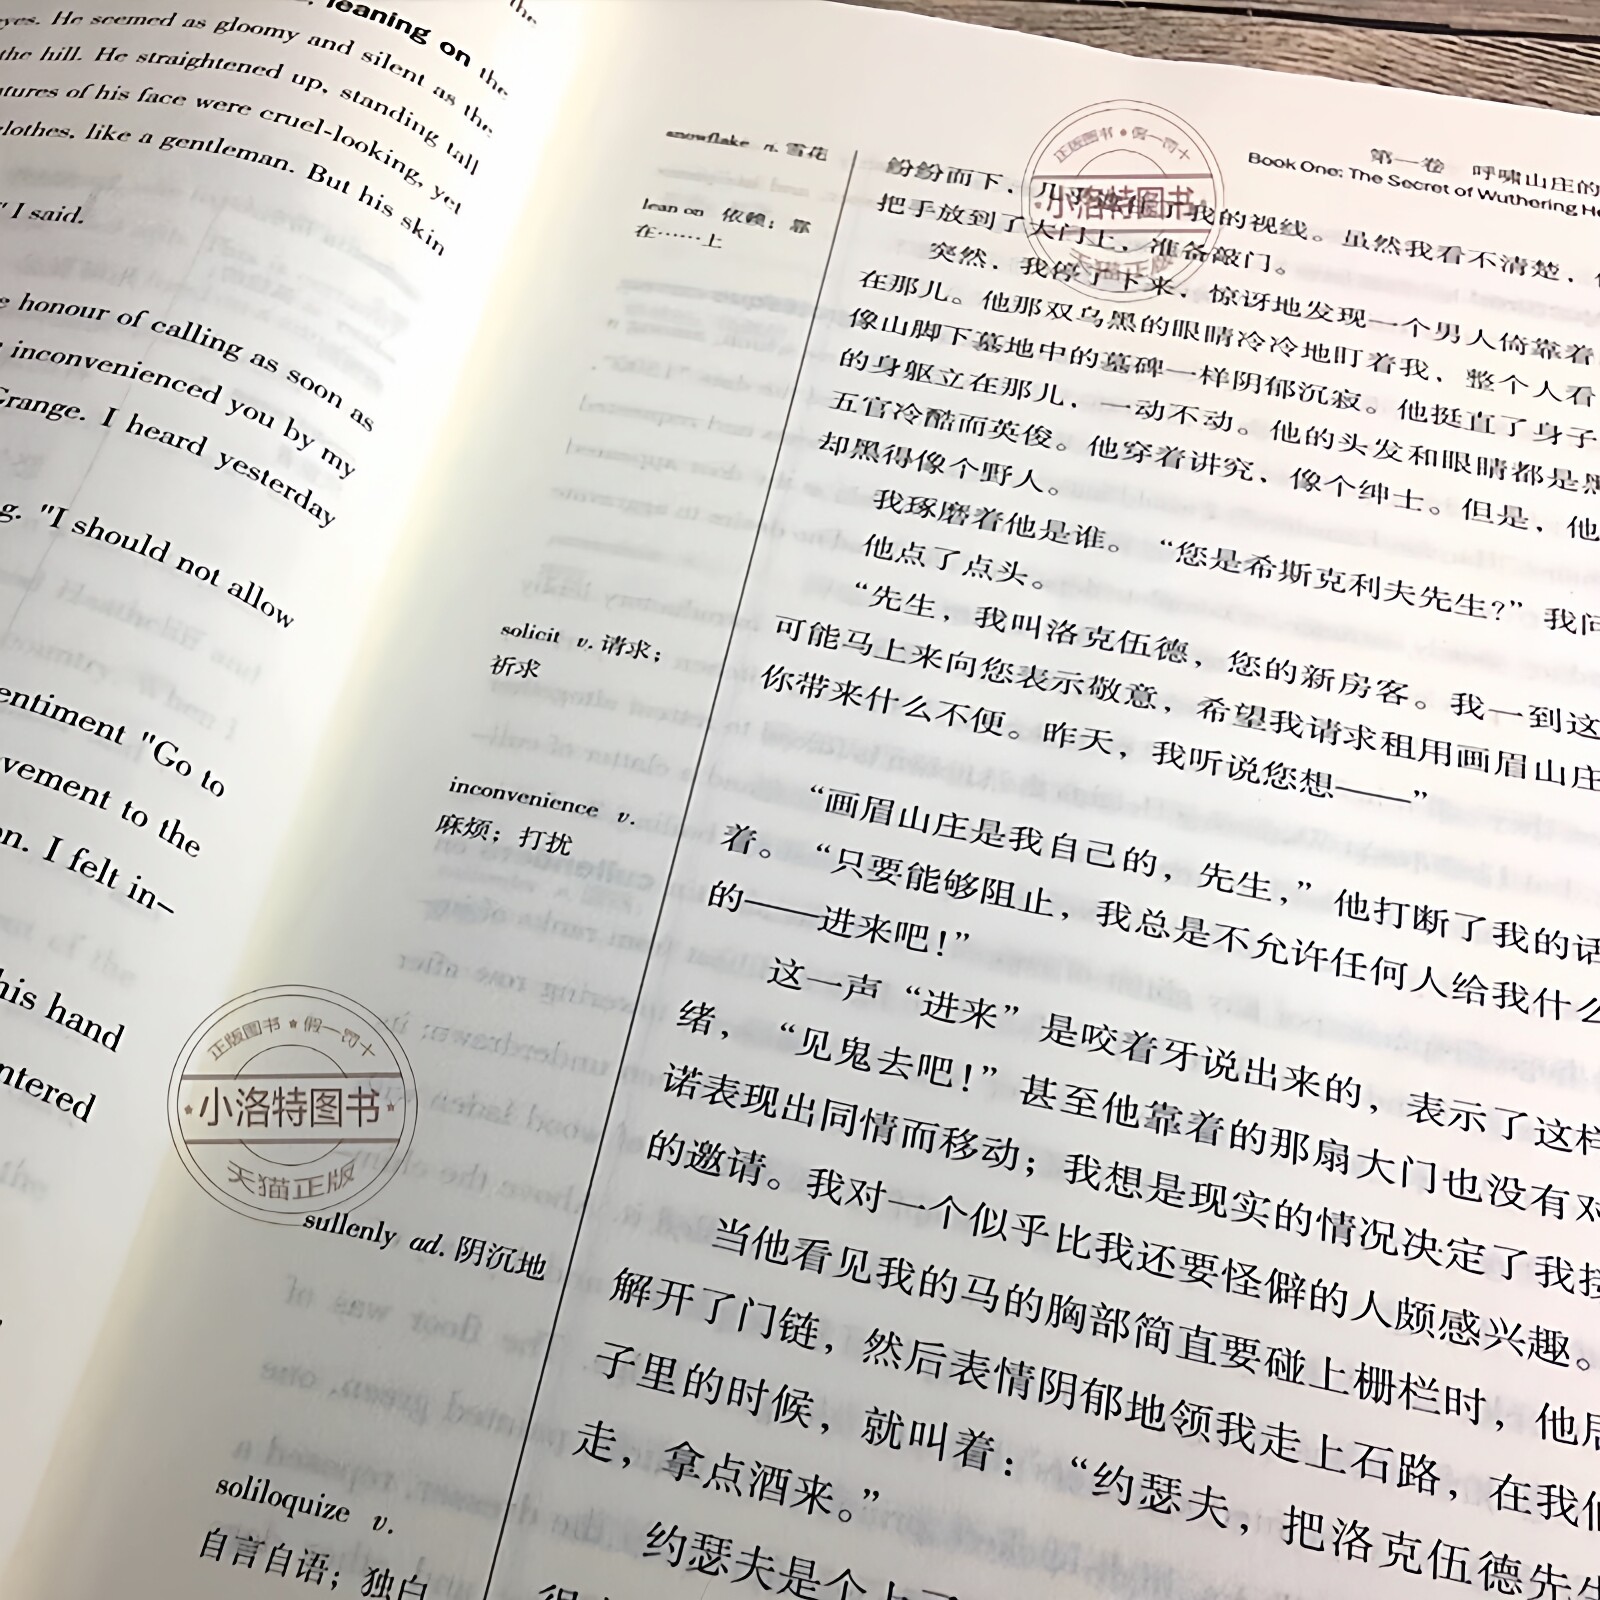 the
leaning on the
eyes. He seemed as gloomy and silent as the
the hill. He straightened up, standing tall
atures of his face were cruel-looking, yet
clothes, like a gentleman. But his skin
" I said.
e honour of calling as soon as
inconvenienced you by my
Grange. I heard yesterday
g. "I should not allow
entiment "Go to
vement to the
on. I felt in-
his hand
ntered
snowflake n. 雪花
lean on 依赖；靠
在……上
solicit v. 请求；
祈求
inconvenience v.
麻烦；打扰
sullenly ad. 阴沉地
soliloquize v.
自言自语；独白
第一卷 呼啸山庄的
Book One: The Secret of Wuthering He
纷纷而下，几乎 了我的视线。虽然我看不清楚，
把手放到了大门上，准备敲门。
突然，我停了下来，惊讶地发现一个男人倚靠着
在那儿。他那双乌黑的眼睛冷冷地盯着我，整个人看
像山脚下墓地中的墓碑一样阴郁沉寂。他挺直了身子
的身躯立在那儿，一动不动。他的头发和眼睛都是黑
五官冷酷而英俊。他穿着讲究，像个绅士。但是，他
却黑得像个野人。
我琢磨着他是谁。“您是希斯克利夫先生？”我问
他点了点头。
“先生，我叫洛克伍德，您的新房客。我一到这
可能马上来向您表示敬意，希望我请求租用画眉山庄
你带来什么不便。昨天，我听说您想——”
“画眉山庄是我自己的，先生，”他打断了我的话
着。“只要能够阻止，我总是不允许任何人给我什么
的——进来吧！”
这一声“进来”是咬着牙说出来的，表示了这样
绪，“见鬼去吧！”甚至他靠着的那扇大门也没有对
诺表现出同情而移动；我想是现实的情况决定了我接
的邀请。我对一个似乎比我还要怪僻的人颇感兴趣。
当他看见我的马的胸部简直要碰上栅栏时，他居
解开了门链，然后表情阴郁地领我走上石路，在我们
子里的时候，就叫着：“约瑟夫，把洛克伍德先生
走，拿点酒来。”
约瑟夫是个上了
正版图书 假一罚十
小洛特图书
天猫正版
正版图书 假一罚十
小洛特图书
天猫正版